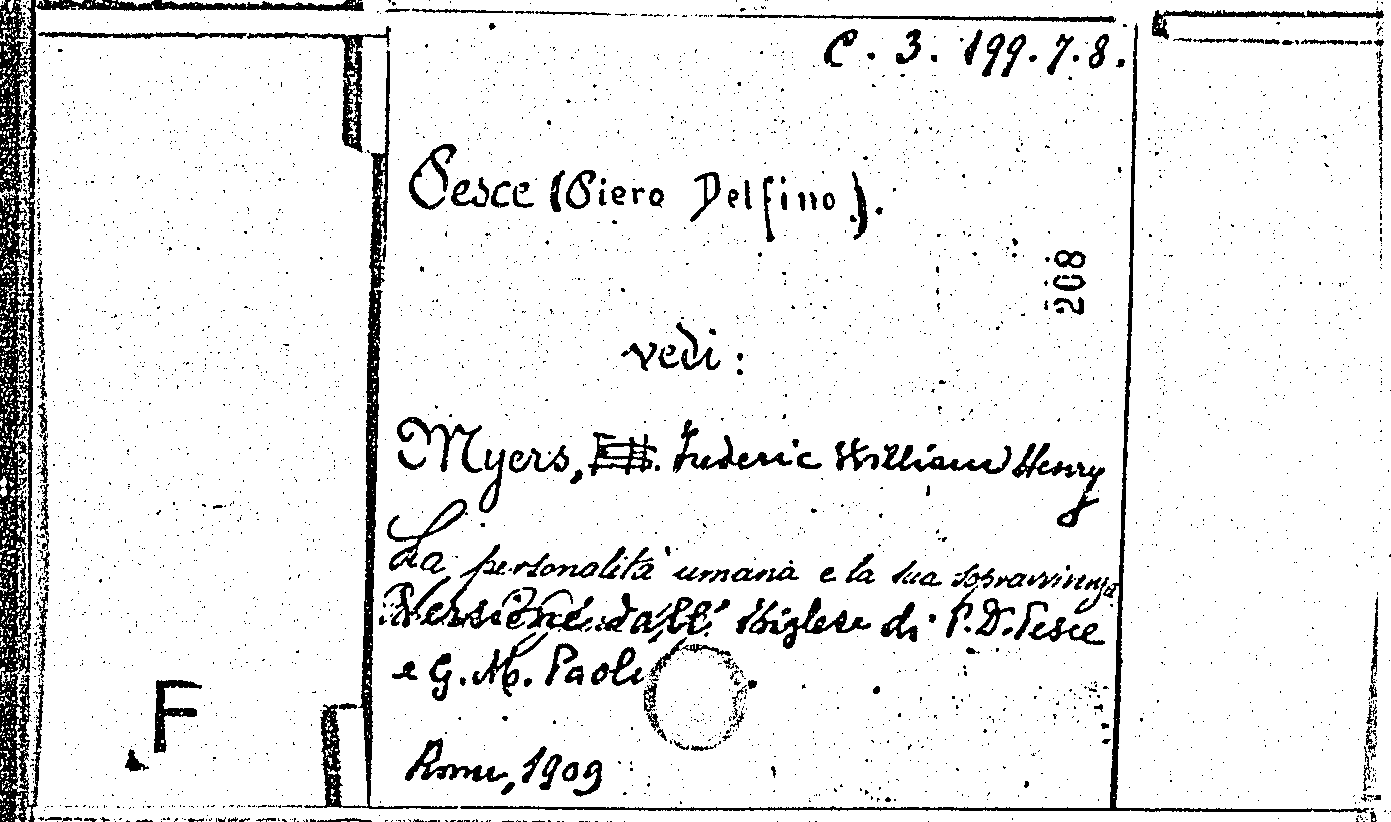 C. 3. 199.7.8.
Pesce (Piero Delfino).
208
vedi:
Myers, Frederic William Henry
La personalità umana e la sua sopravvivenza
Versione dall' Inglese di P. D. Pesce
e G. M. Paoli
F
Roma, 1909